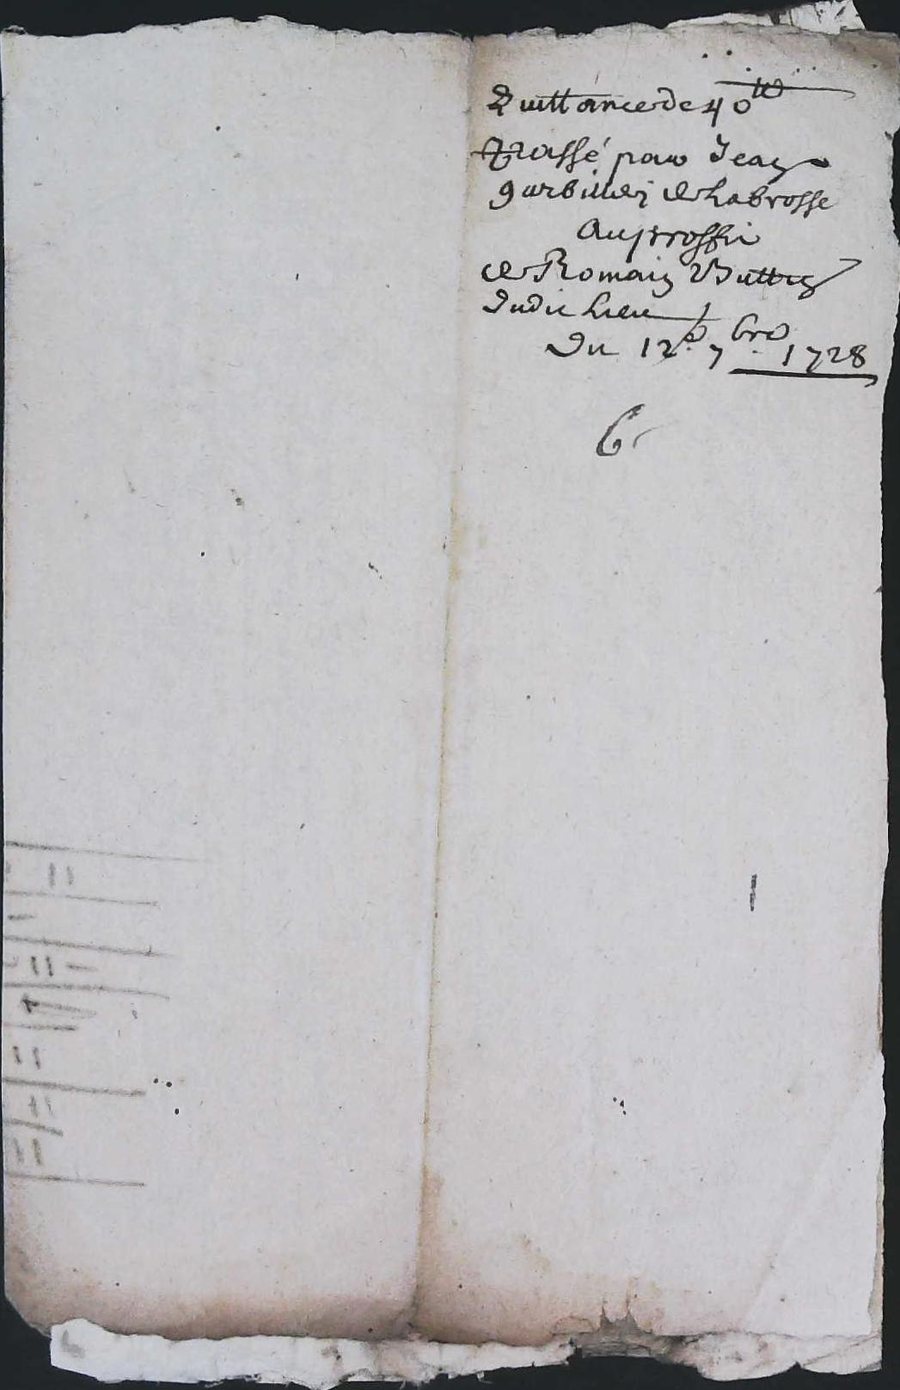 Quittance de 40 tt
Passé par Jean
gurbillier de Labrosse
Au proffit
de Romain Buttin
dudit Lieu
Du 12e 7bre 1728
6